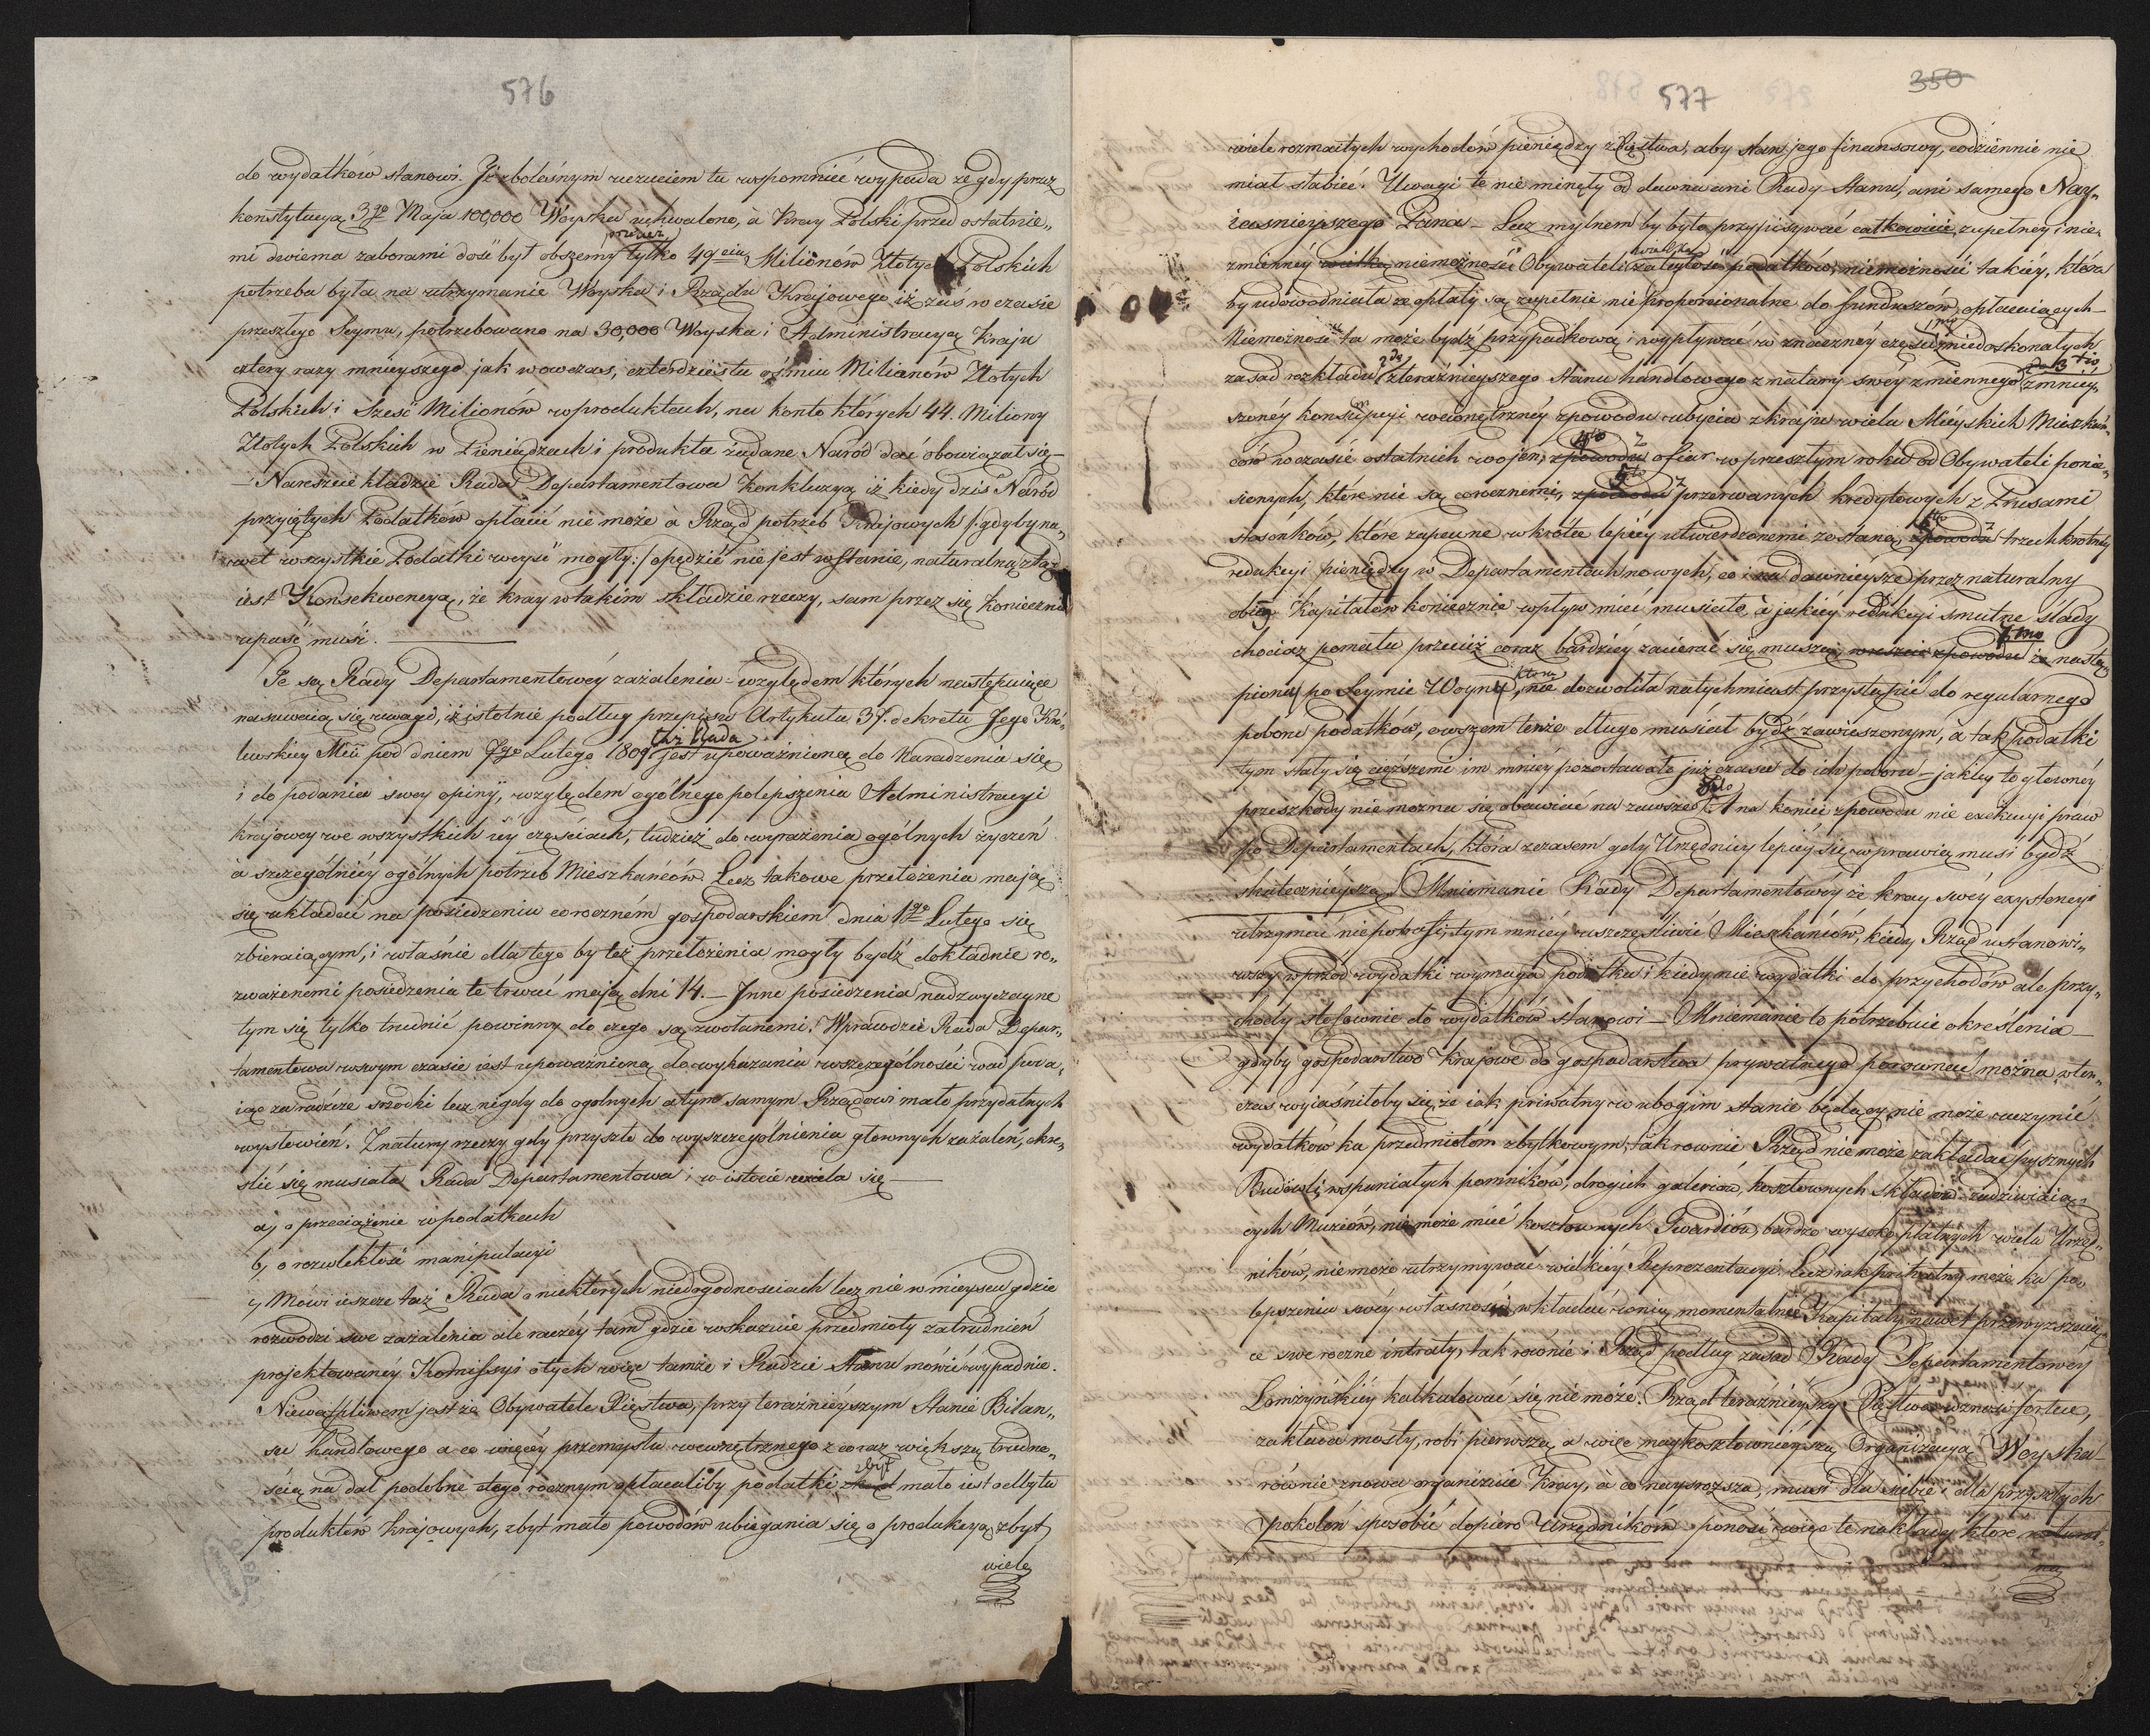 576
do wydatków stanowi. Iż zbolesnym uczuciem tu wspomnieć wypada że gdy przez
konstytucyą 3go Maja 100,000 Woyska uchwalono, à Kray Polski przed ostatnie„
mi dwiema zaborami dość był obszerny przecież tylko 49ciu Milionów Złotych Polskich
potrzeba była na utrzymanie Woyska i Rządu Krajowego iż zaś w czasie
przeszłego Seymu, potrzebowano na 30,000 Woyska i Administracyą Kraju
cztery razy mnieyszego jak wowczas, czterdziestu ośmiu Milionów Złotych
Polskich i sześć Milionów w produktach, na konto których 44. Miliony
Złotych Polskich w Pieniądzach i produkta żądane Naród dać obowiązał się —
— Nareszcie kładzie Rada Departamentowa Konkluzyą iż kiedy dziś Naród
przyiętych Podatków opłacić nie może à Rząd potrzeb Krajowych /: gdyby na„
wet wszystkie Podatki weyść mogły :/ opędzić nie jest w stanie, naturalną ztąd
iest Konsekwencyą, że kray w takim składzie rzeczy, sam przez się koniecznie
upaść musi.
Te są Rady Departamentowéy zażalenia — względem których następuiące
nasuwaią się uwagi, iż istotnie podług przepisu Artykułu 37. dekretu Jego Kró„
lewskiey Mci pod dniem 7go Lutego 1809 też Rada jest upoważnioną do Naradzenia się
i do podania swey opinij, względem ogólnego polepszenia Administracyi
krajowey we wszystkich iéy częściach, tudzież do wyrażenia ogólnych życzeń
à szczególniéy ogólnych potrzeb Mieszkańców. Lecz takowe przełożenia mają
się układać na posiedzeniu coroczném gospodarskiem dnia 1go Lutego się
zbieraiącym, i właśnie dla tego by też przełożenia mogły bydź dokładnie ro„
zważonemi posiedzenia te trwać mają dni 14. — Inne posiedzenia nadzwyczayne
tym się tylko trudnić powinny do czego są zwołanemi. Wprawdzie Rada Depar„
tamentowa w swym czasie iest upoważnioną do wykazania w szczególności wad poda„
iąc zaradcze środki lecz nigdy do ogolnych a tym samym Rządowi mało przydatnych
wysłowień. Z natury rzeczy gdy przyszło do wyszczególnienia głownych zażaleń, okre„
ślić się musiała Rada Departamentowa i w istocie użala się —
a, o przeciążenie w podatkach
b, o rozwlekłość manipulacyi
c, Mówi ieszcze taż Rada o niektórych niedogodnosciach lecz nie w mieyscu gdzie
rozwodzi swe zażalenia ale raczéy tam gdzie wskazuie przedmioty zatrudnień
projektowanéy Kommissyi o tych więc tamże i Radzie Stanu mówić wypadnie.
Niewątpliwem jest że Obywatele Xięstwa, przy teraźnieyszym Stanie Bilan„
su handlowego a co więcéy przemysłu wewnętrznego z coraz większą trudno„
ścią na dal podobne tego rocznym opłacaliby podatki zbyt mało iest odbytu
produktów krajowych, zbyt mało powodów ubiegania się o produkcyą, zbyt
wiele
577
350
wiele rozmaitych wychodów pieniędzy z Xięstwa, aby stan jego finansowy, codziennie nie
miał słabieć. Uwagi te nie minęły od dawna ani Rady Stanu, ani samego Nay„
iasnieyszego Pana — Lecz mylnem by było przypisywać całkowicie zupełnéy i nie„
zmiennéy niemożności Obywateli wielką zaległość podatków, niemożności takiéy, która
by udowadniała że opłaty są zupełnie nie proporcionalne do funduszów opłacaiących —
Niemożność ta może bydź przypadkową i wypływać w znacznéy części 1mo z niedoskonałych
zasad rozkładu 2do z teraźnieyszego Stanu handlowego z natury swéy zmiennego 3tio z zmniey„
szonéy konsumpcyi wewnętrznéy zpowodu ubycia z kraju wielu Mieyskich Mieszkań„
ców w czasie ostatnich wojen, 4to z ofiar w przeszłym roku od Obywateli ponie„
sionych, które nie są corocznemi, 5to z przerwanych kredytowych z Prusami
stosónków, które zapewne wkrótce lepiéy utwierdzonemi zostaną, 6to z trzechkrotnéy
redukcyi pieniędzy w Departamentach nowych, co i na dawnieysze przez naturalny
obieg Kapitałów koniecznie wpływ mieć musiało, à jakiéy redukcyi smutne ślady
chociaż pomału przecież coraz bardziéy zacierać się muszą, 7mo że nastą„
piona po Seymie Woyna, która nie dozwoliła natychmiast przystąpić do regularnego
poboru podatków, owszem tenże długo musiał bydź zawieszonym, à tak podatki
tym stały się cięższemi im mniéy pozostawało już czasu do ich poboru — jakiéy to głownéy
przeszkody nie można się obawiać na zawsze 8vo A na koniec zpowodu nie exekucyi praw
po Departamentach, która zczasem gdy Urzędnicy lepiéy się wprawią musi bydź
skutecznieyszą. Mniemanie Rady Departamentowéy że kray swéy exystencyi
utrzymać niepotrafi, tym mniéy uszczęśliwić Mieszkańców, kiedy Rząd ustanowi„
wszy wprzód wydatki wymaga podatku i kiedy nie wydatki do przychodów ale przy„
chody stosownie do wydatków stanowi — Mniemanie to potrzebuie określenia —
gdyby gospodarstwo Krajowe do gospodarstwa prywatnego porównać można, wten„
czas wyiaśniłoby się, że iak priwatny w ubogim stanie będący nie może uczynić
wydatków ku przedmiotom zbytkowym, tak równie Rząd nie może zakładać pysznych
Budowli, wspaniałych pomników, drogich galeriów, kosztownych składów zadziwiaią„
cych Muzeów, nie może mieć kosztownych Gwardiów, bardzo wysoko płatnych wielu Urzęd„
ników, niemoże utrzymywać wielkiéy Reprezentacyi. Lecz iak priwatny może ku po„
lepszeniu swéy własności, wkładać w nią momentalnie Kapitały nawet przewyższaią„
ce swe roczne intraty, tak równie i Rząd podług zasad Rady Departamentowey
Łomżyńskiéy kalkulować się nie może. Rząd teraźnieyszy Xięstwa wznosi fortece,
zakłada mosty, robi pierwszą a więc naykosztownieyszą Organizacyą Woyska —
równie znowa organizuie Kray, a co naysroższa, musi dla siebie i dla przyszłych
pokoleń sposobić dopiero Urzędników ponosi więc te nakłady które natural„
ną